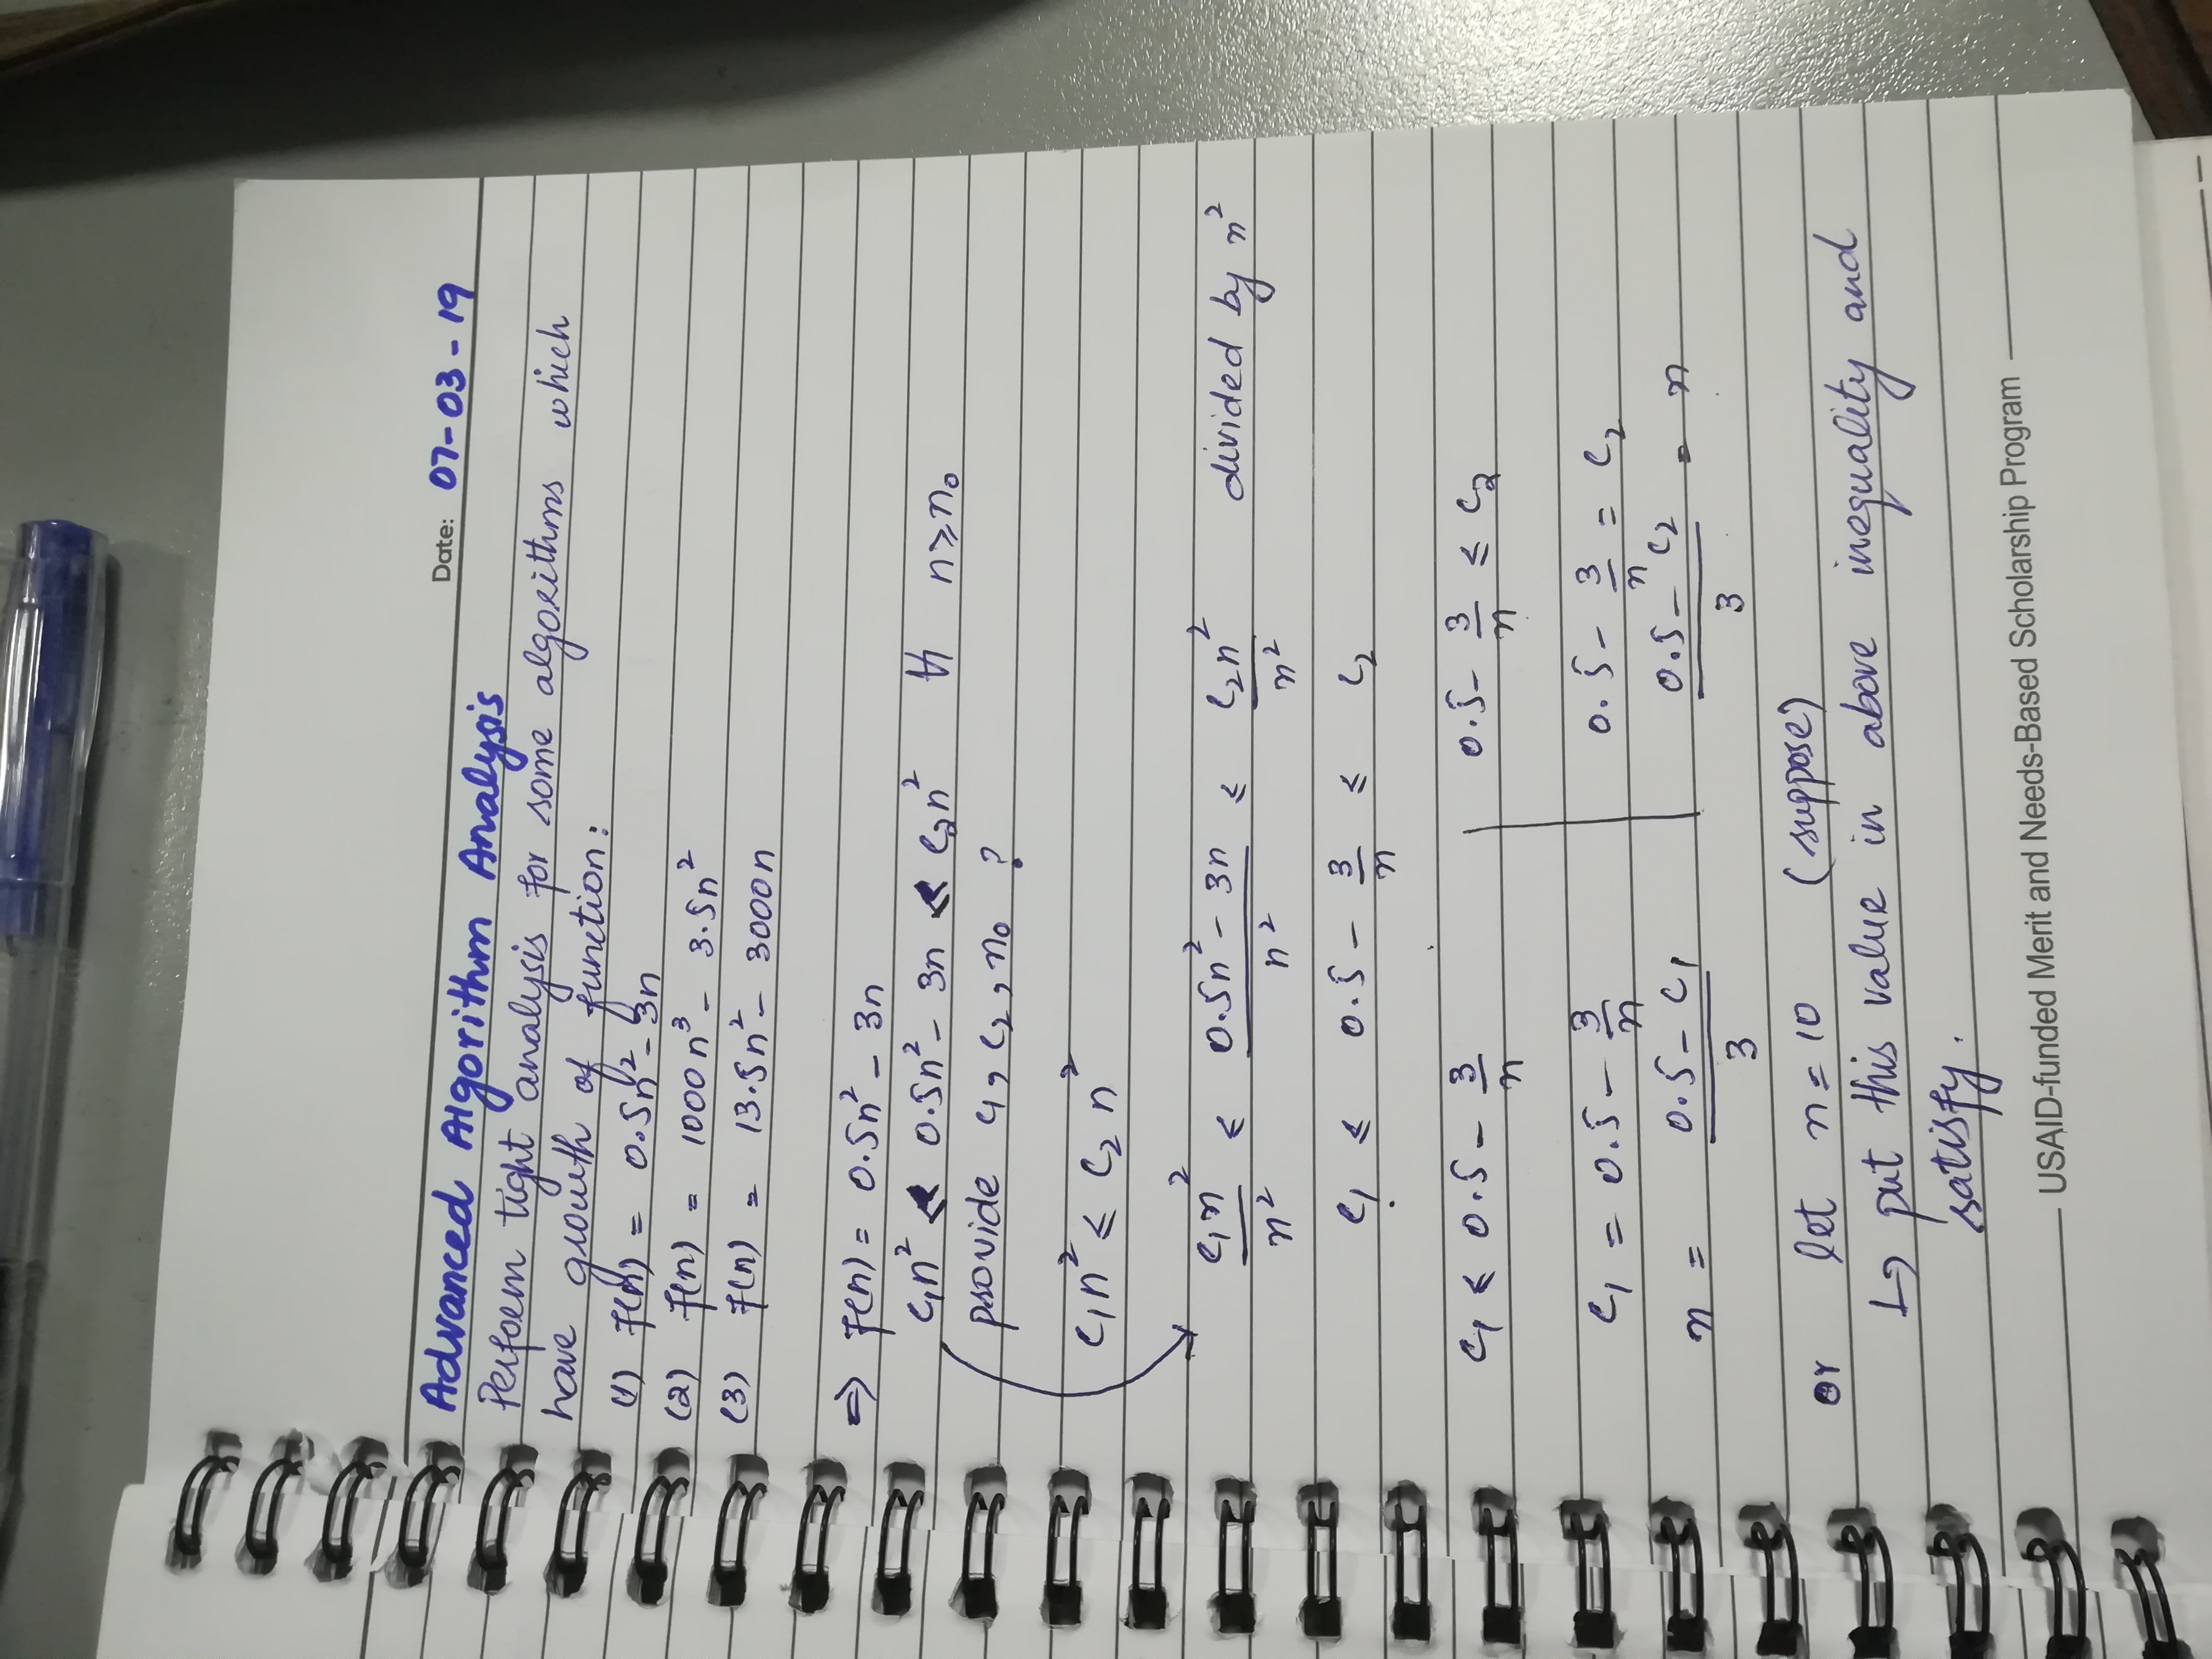 Date: 07-03-19
Advanced Algorithm Analysis
Perform tight analysis for some algorithms which
have growth of function:
(1) f(n) = 0.5n² - 3n
(2) f(n) = 1000n³ - 3.5n²
(3) f(n) = 13.5n² - 3000n
⇒ f(n) = 0.5n² - 3n
c₁n² ≤ 0.5n² - 3n ≤ c₂n² ∀ n ≥ n₀
provide c₁, c₂, n₀ ?
c₁n² ≤ c₂n²
c₁n²/n² ≤ (0.5n² - 3n)/n² ≤ c₂n²/n² divided by n²
c₁ ≤ 0.5 - 3/n ≤ c₂
c₁ ≤ 0.5 - 3/n | 0.5 - 3/n ≤ c₂
c₁ = 0.5 - 3/n | 0.5 - 3/n = c₂
n = (0.5 - c₁)/3 | (0.5 - c₂)/3 = n
or let n = 10 (suppose)
↳ put this value in above inequality and
satisfy.
USAID-funded Merit and Needs-Based Scholarship Program